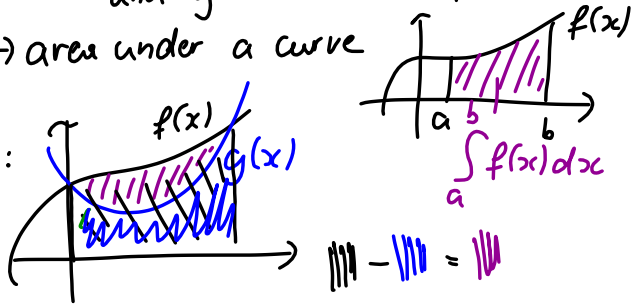 → area under a curve
f(x)
a
b
b
∫ f(x) dx
a
f(x)
g(x)
:
- =